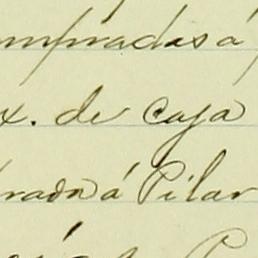 mpradas á
x. de caja
rada á Pilar